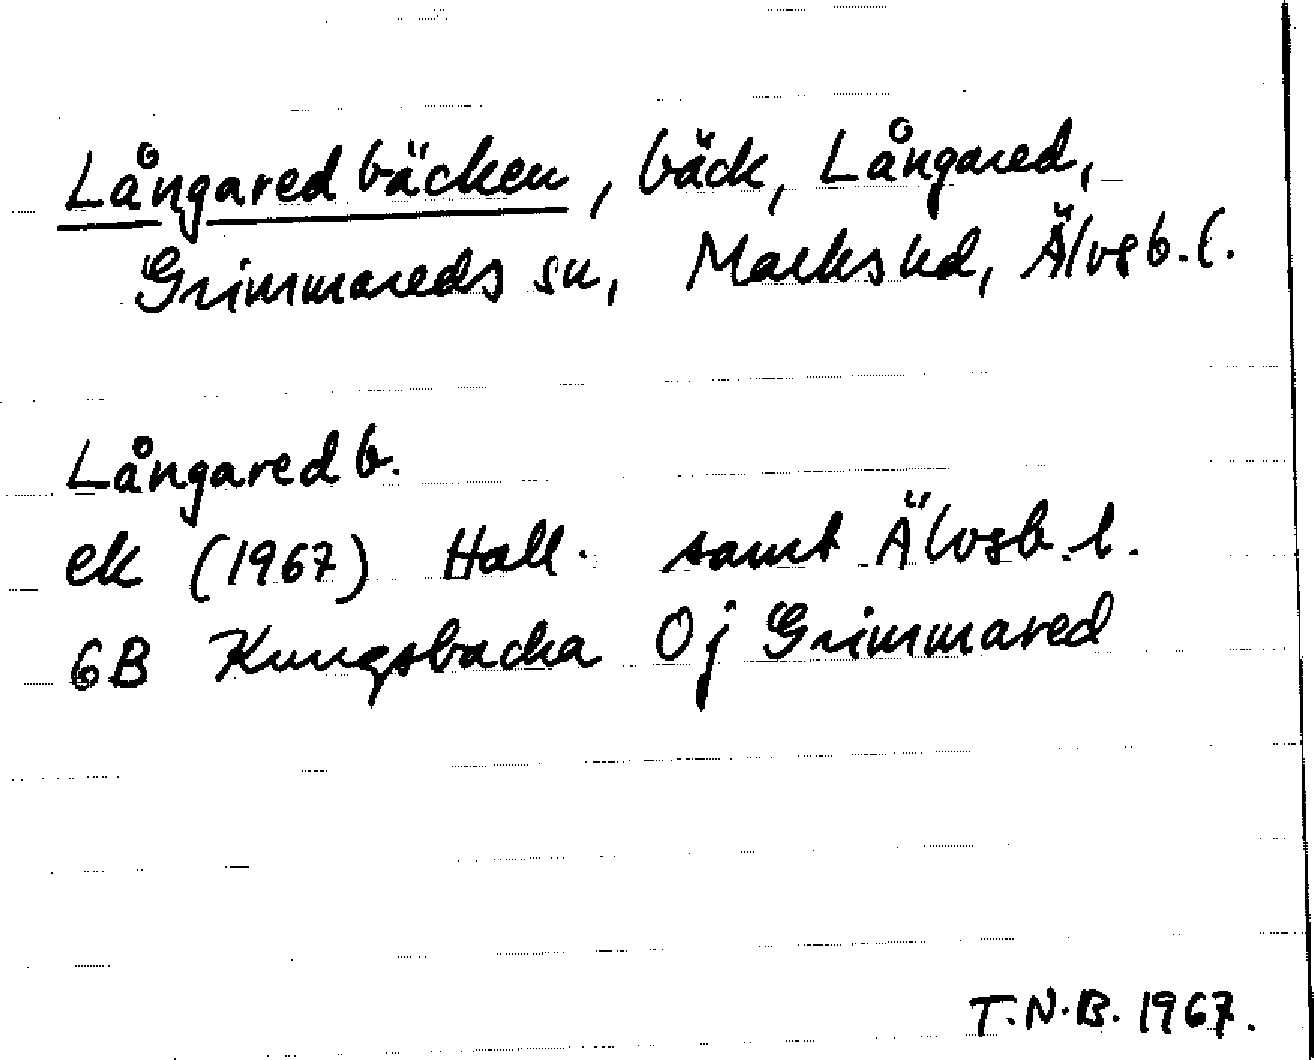 Långaredbäcken, bäck, Långared,
Grimmareds sn, Marks hd, Älvsb. l.
Långaredb.
ek (1967) Hall. samt Älvsb. l.
6B Kungsbacka 0j Grimmared
T.N.B. 1967.